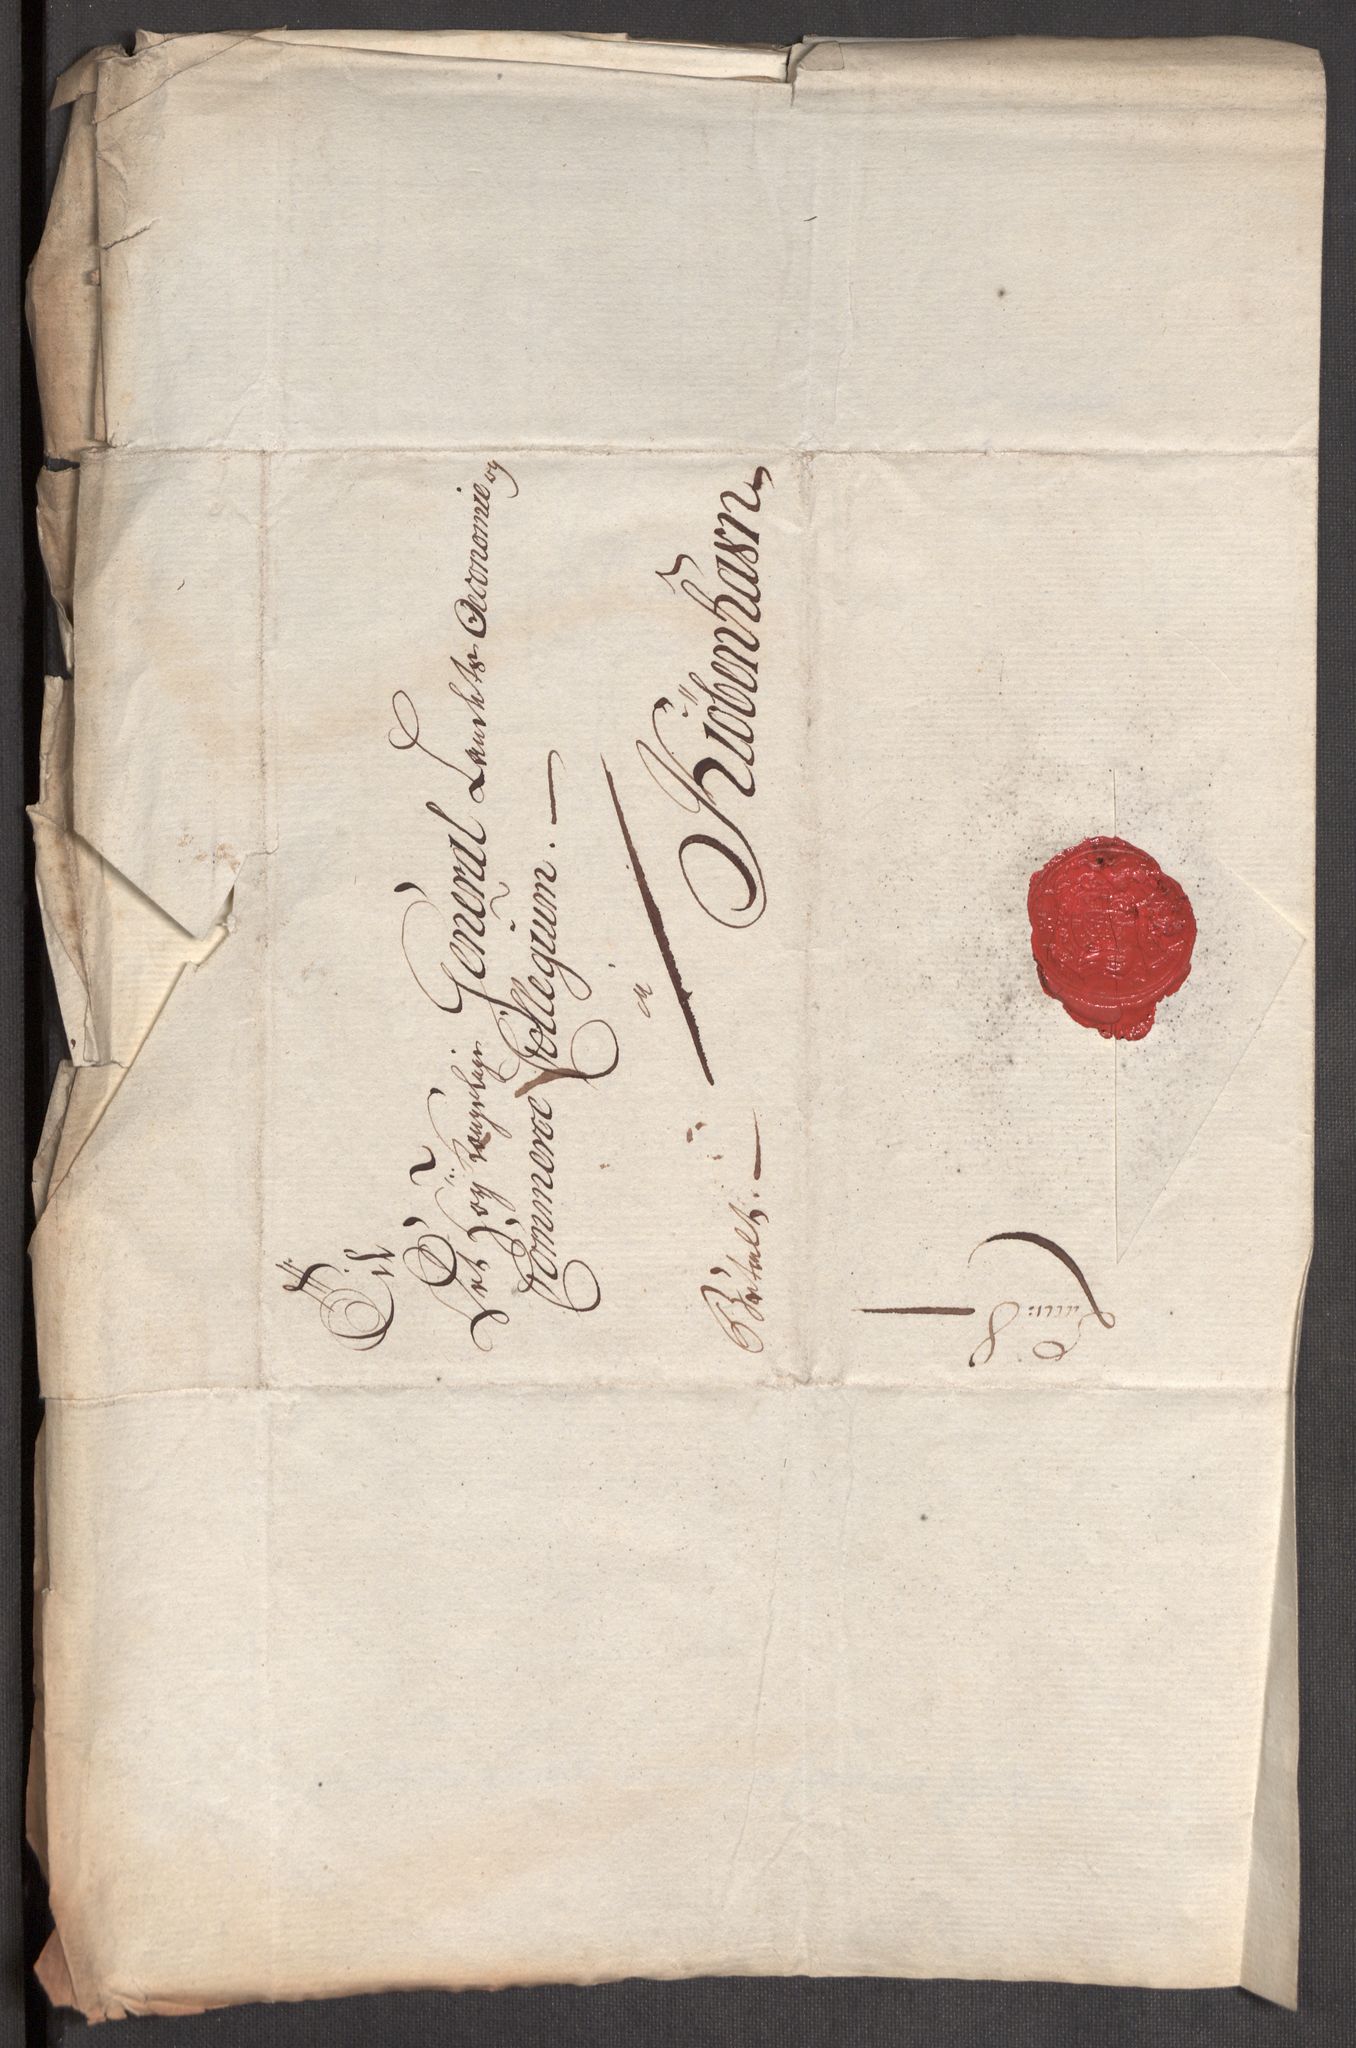 Til
Det Höy Kongelige General Landets Oeconomie og
Commerce Collegium.
i
Kiöbenhavn
Betalt.
8